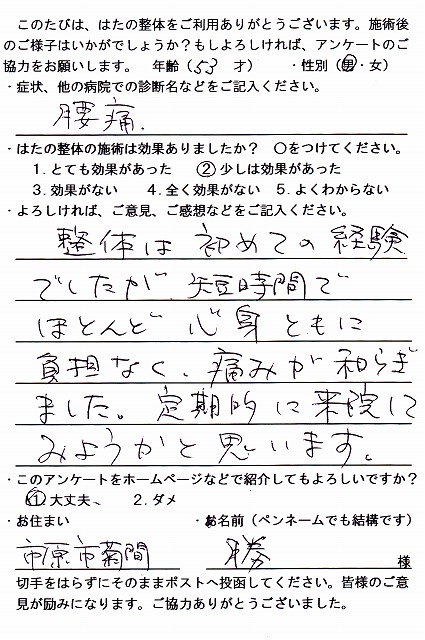 このたびは、はたの整体をご利用ありがとうございます。施術後
のご様子はいかがでしょうか?もしよろしければ、アンケートのご
協力をお願いします。 年齢(53 才) ・性別(男・女)
・症状、他の病院での診断名などをご記入ください。
腰痛.
・はたの整体の施術は効果ありましたか? ○をつけてください。
1.とても効果があった ②少しは効果があった
3.効果がない 4.全く効果がない 5.よくわからない
・よろしければ、ご意見、ご感想などをご記入ください。
整体は初めての経験
でしたが、短時間で
ほとんど心身ともに
負担なく、痛みが和らぎ
ました。定期的に来院して
みようかと思います。
・このアンケートをホームページなどで紹介してもよろしいですか?
①大丈夫、 2.ダメ
・お住まい ・お名前(ペンネームでも結構です)
市原市菊間 勝 様
切手をはらずにそのままポストへ投函してください。皆様のご意
見が励みになります。ご協力ありがとうございました。